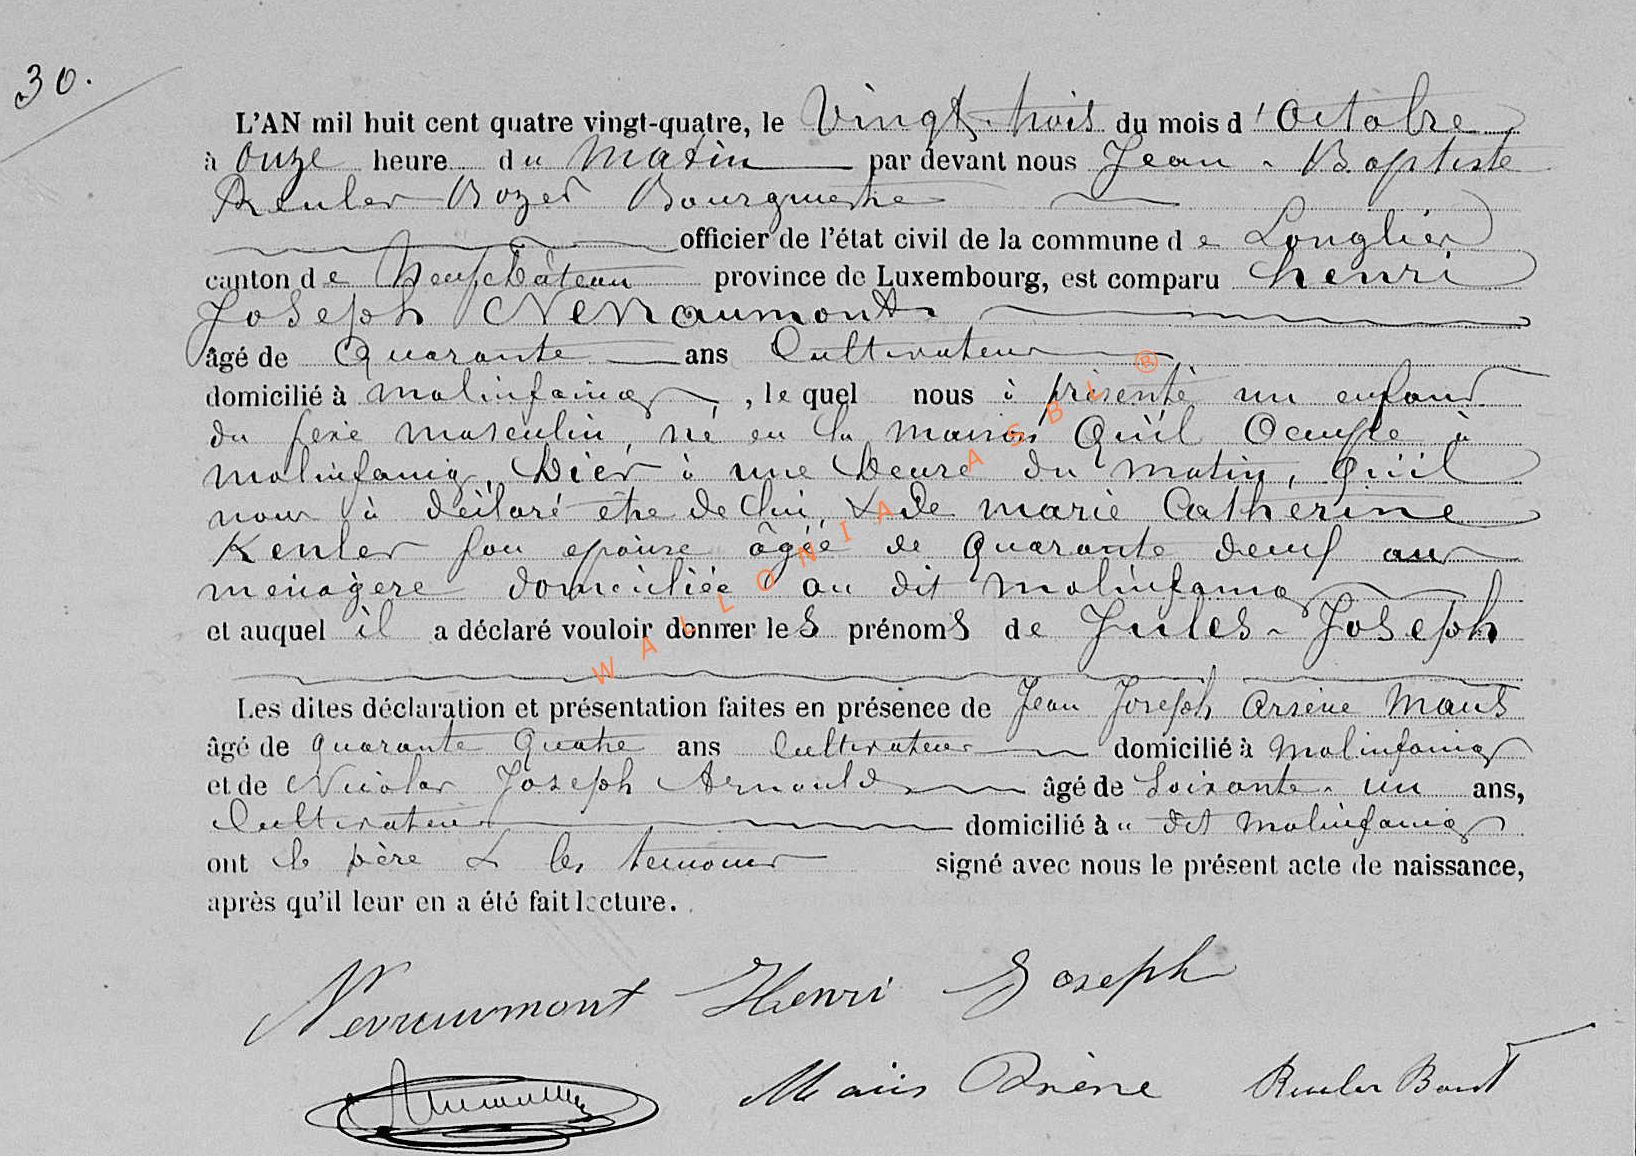 30.
L'AN mil huit cent quatre vingt-quatre, le Vingt-trois du mois d'Octobre
à onze heure du Matin par devant nous Jean-Baptiste
Reuler Bozet Bourgmestre
officier de l'état civil de la commune de Longlier
canton de Neufchâteau province de Luxembourg, est comparu henri
Joseph Nevraumont
âgé de Quarante ans Cultivateur
domicilié à molinfaing, lequel nous à présenté un enfant
du sexe masculin, né en la maison Qu'il Occupe à
molinfaing, hier à une heure du matin, Qu'il
nous à déclaré etre de lui, & de marie Catherine
Keuler son epouse âgée de Quarante deux ans
menagère domiciliée au dit molinfaing
et auquel il a déclaré vouloir donner les prénoms de Jules-Joseph
Les dites déclaration et présentation faites en présence de Jean Joseph Arsène Maus
âgé de quarante Quatre ans Cultivateur domicilié à Molinfaing
et de Nicolas Joseph Arnould âgé de Soixante-un ans,
Cultivateur domicilié à u dit Molinfaing
ont le père & les temoins signé avec nous le présent acte de naissance,
après qu'il leur en a été fait lecture.
Nevraumont Henri Joseph
Maus Arsène
WALLONIA ASBL ®